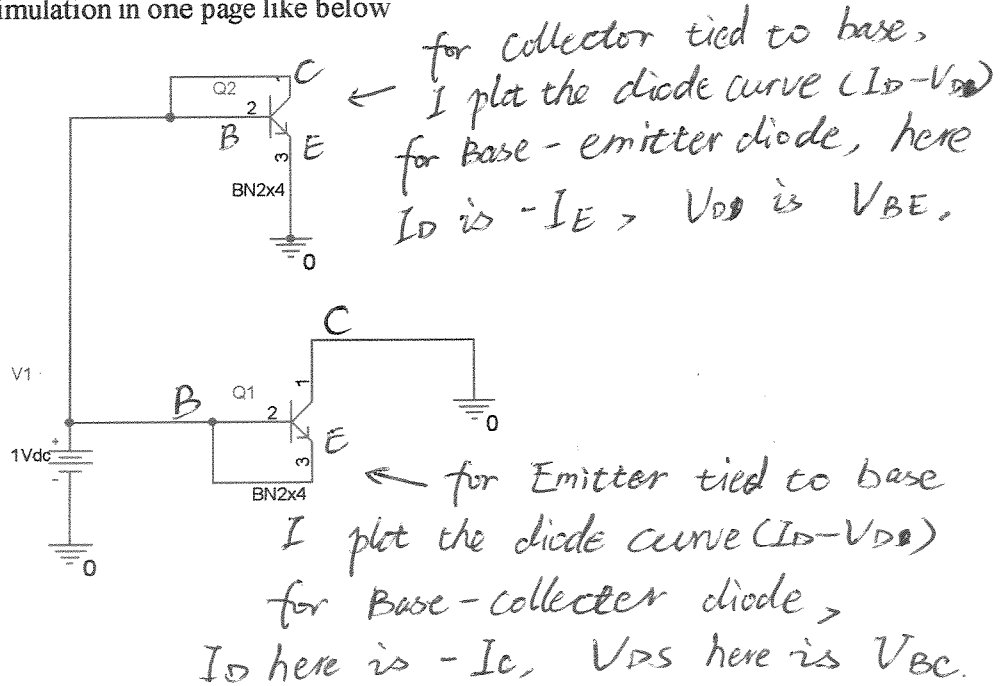 imulation in one page like below
for collector tied to base,
I plot the diode curve (ID-VD)
for Base-emitter diode, here
ID is -IE, VD is VBE.
C
Q2
2
B
3
E
BN2x4
0
C
V1
B
Q1
1
2
0
E
1Vdc
+
-
3
BN2x4
0
for Emitter tied to base
I plot the diode curve (ID-VD)
for Base-collecter diode,
ID here is -Ic, VDS here is VBC.